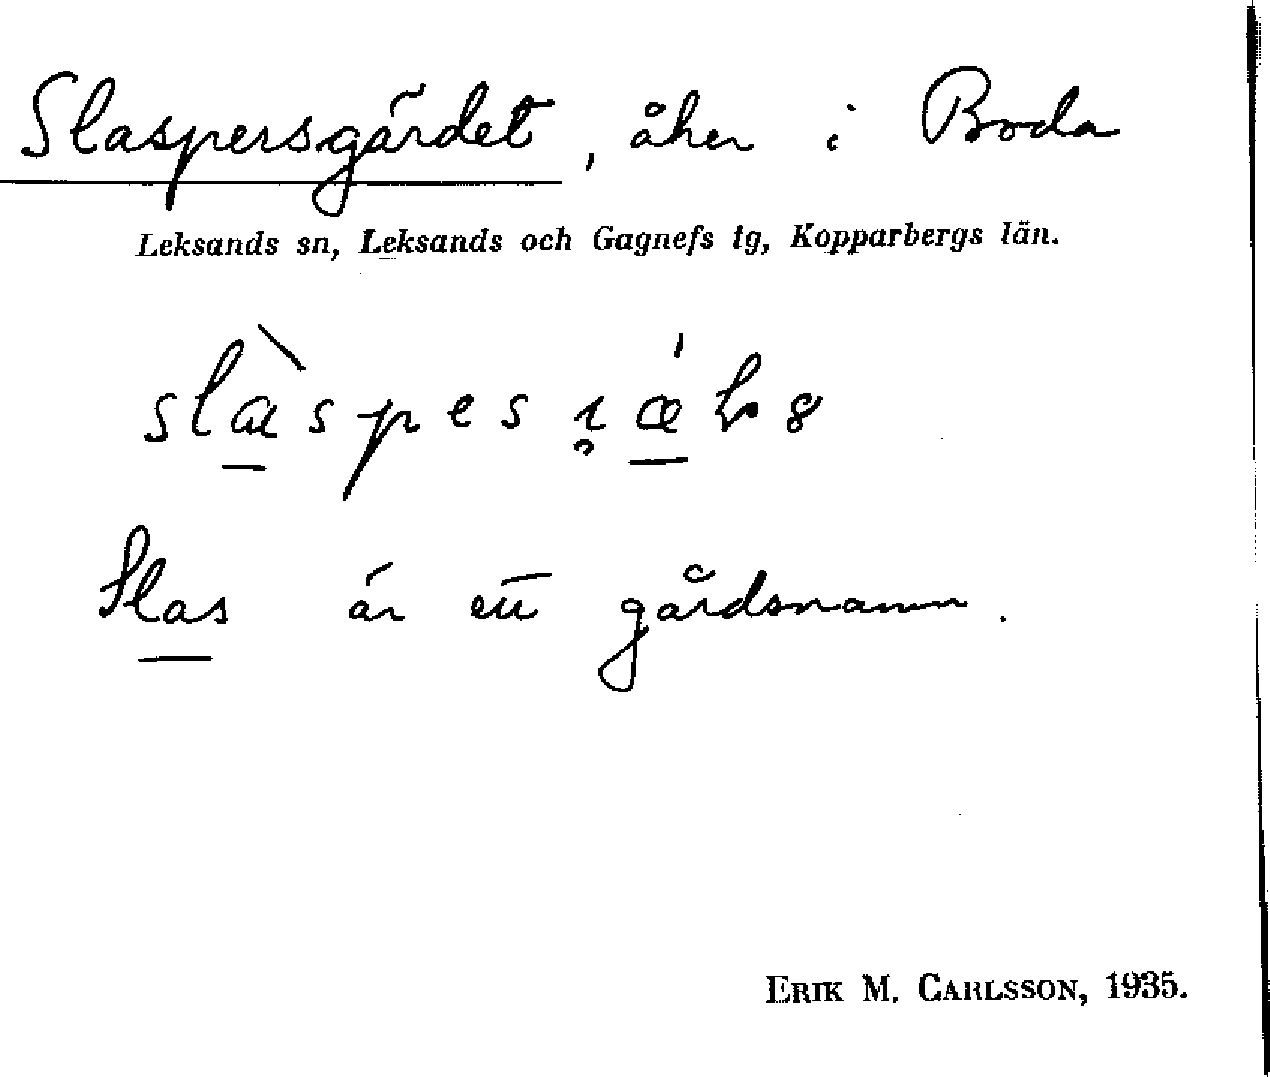 Slaspersgärdet, åker i Boda
Leksands sn, Leksands och Gagnefs tg, Kopparbergs län.
Slas är ett gårdsnamn.
ERIK M. CARLSSON, 1935.